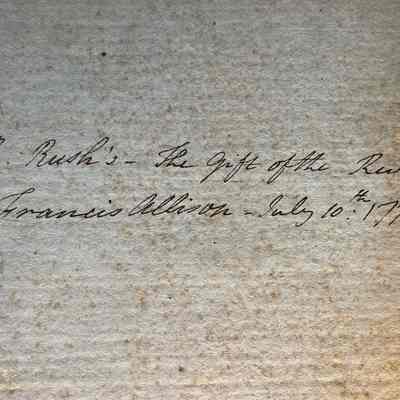 . Rush's - The Gift of the Rev
Francis Allison - July 10.th 177